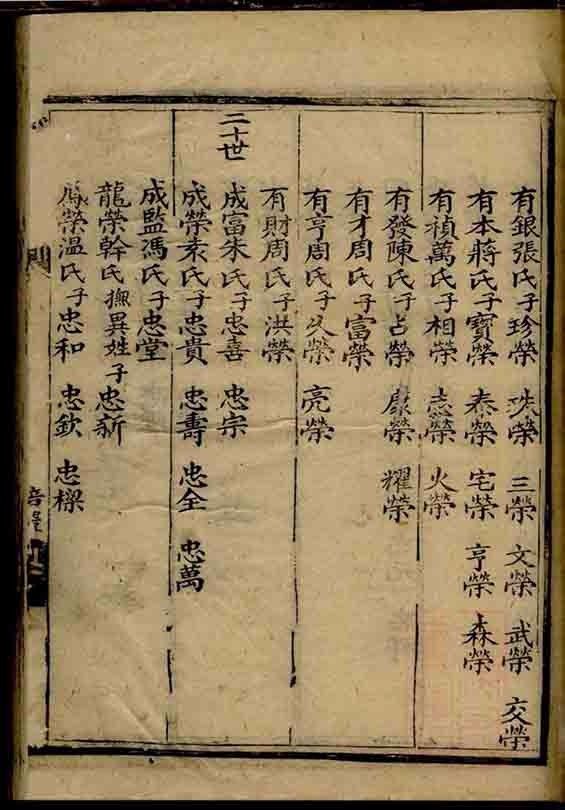 有銀張氏子珍榮 珠榮 三榮 文榮 武榮 交榮
有本蔣氏子寶榮 泰榮 宅榮 亨榮 森榮
有禎萬氏子相榮 志榮 火榮
有發陳氏子占榮 康榮 耀榮
有才周氏子富榮
有亨周氏子久榮 亮榮
有財周氏子洪榮
二十世
成富朱氏子忠喜 忠宗
成榮袁氏子忠貴 忠壽 忠全 忠萬
成監馮氏子忠堂
龍榮幹氏撫異姓子忠新
榮溫氏子忠和 忠欽 忠樑